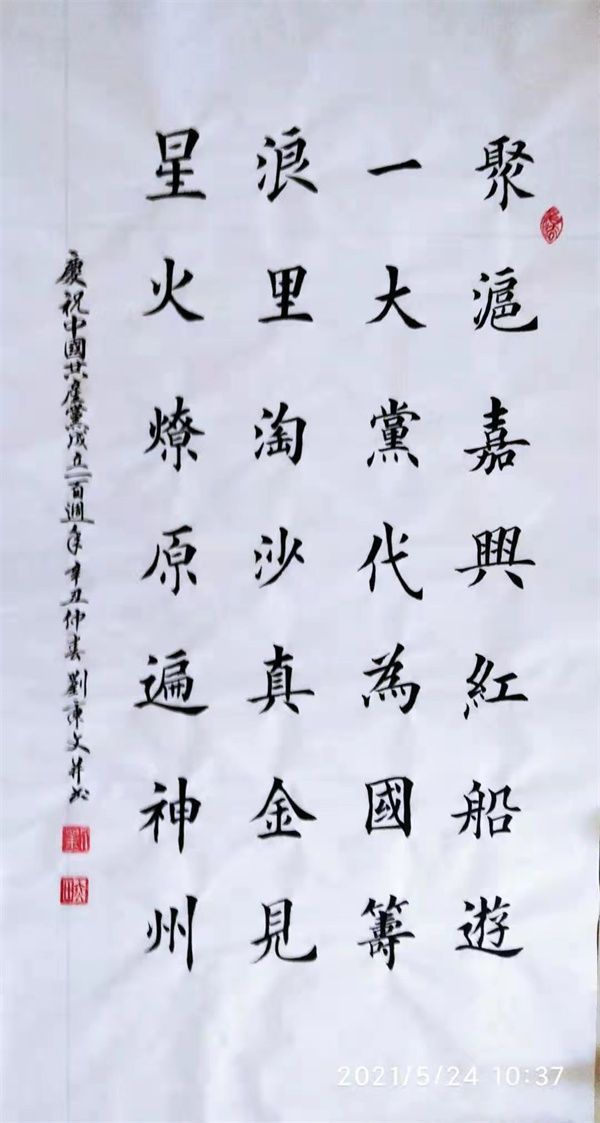 聚滬嘉興紅船遊
一大黨代為國籌
浪里淘沙真金見
星火燎原遍神州
慶祝中國共產黨成立一百週年辛丑仲春劉東文并书
2021/5/24 10:37